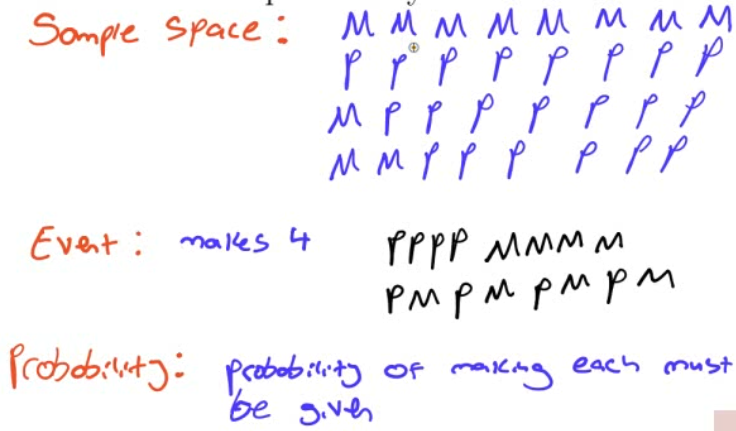 Sample Space: M M M M M M M M
P P P P P P P P
M P P P P P P P
M M P P P P P P
Event: makes 4 PPPP MMMM
PMPMPMPM
Probability: probability of making each must
be given